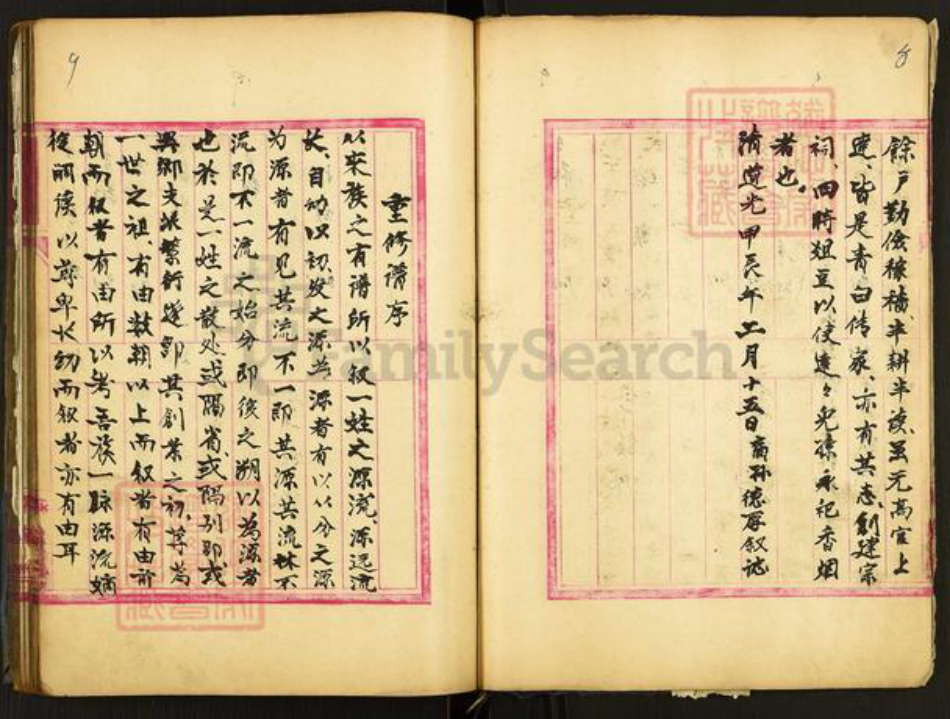 8
餘戶勤儉稼穡、半耕半读、虽无高官上
達、皆是青白传家、亦有其志、創建宗
祠、四時俎豆以使連々兒孫永祀香烟
者也。
清道光甲辰年二月十五日裔孙德厚叙誌
9
重修谱序
以宋族之有谱所以叙一姓之源流、源远流
长、自幼以
为源者有见其流不一即其源其流林不
流即不一流之始分即後之朔以為源者
也於是一姓之散处或隔省或隔别郡或
異郡支派繁衍遂即其創業之初、尊為
一世之祖、有由数朝以上而叙者有由前
朝而叙者有由所以考吾族一脉源流嫡
後嗣读以尊卑长幼而叙者亦有由耳
FamilySearch